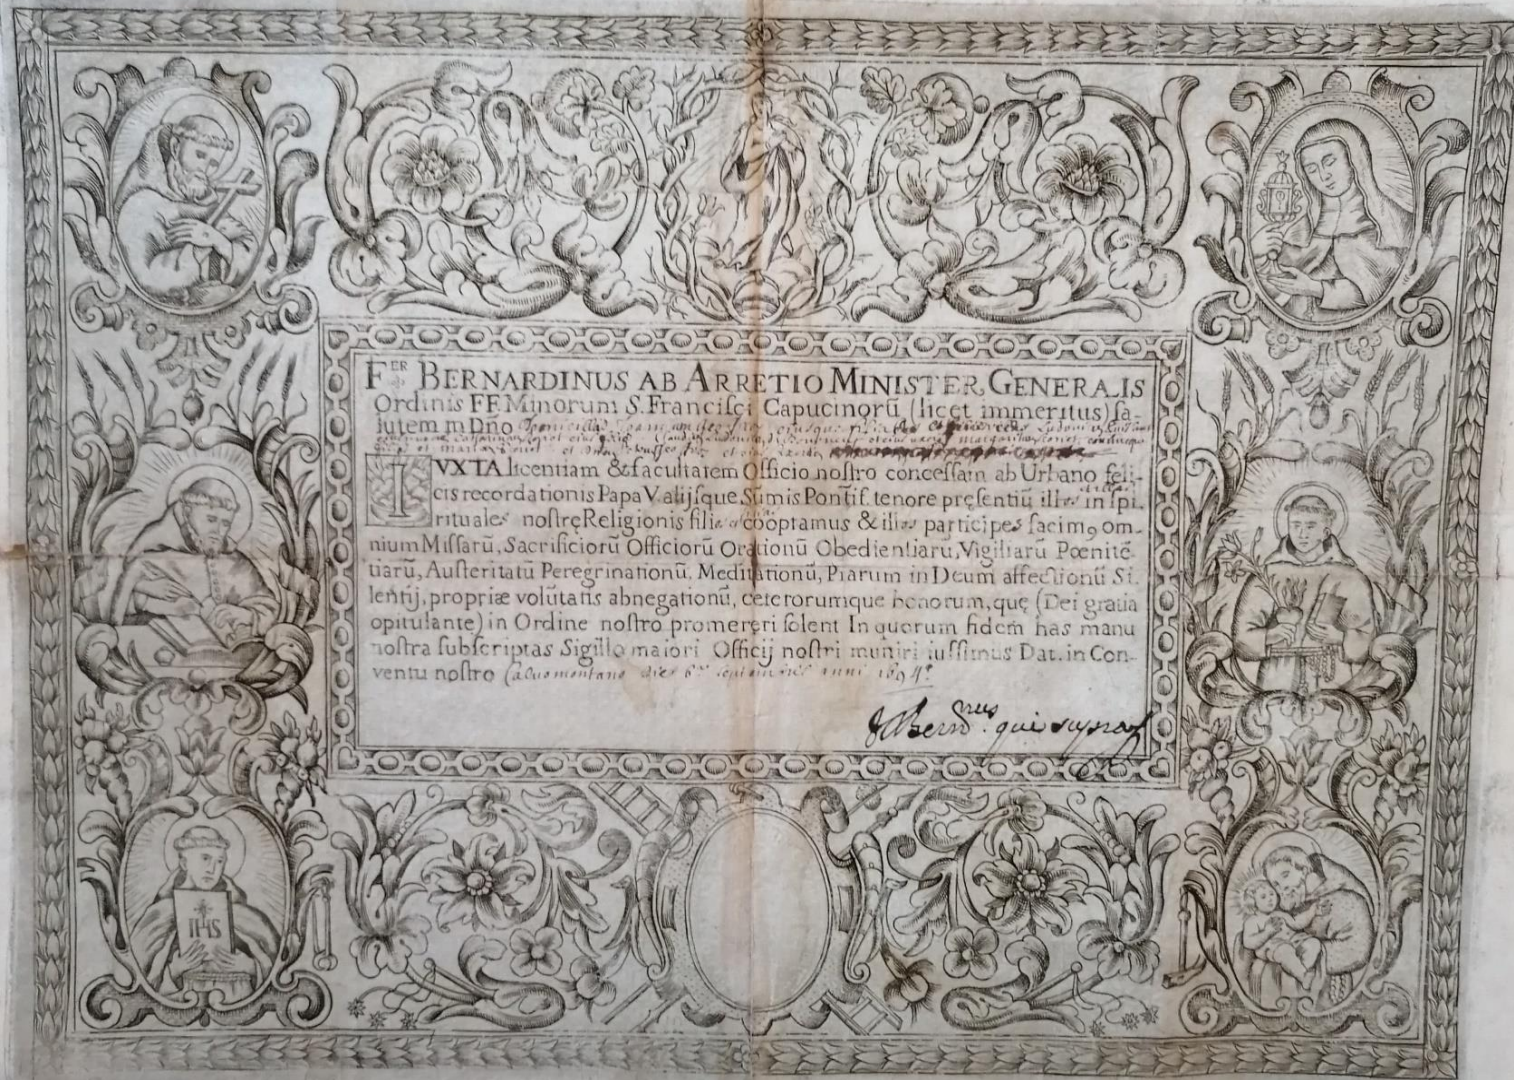 Fer BERNARDINUS AB ARRETIO MINISTER GENERALIS
Ordinis FF. Minorum S. Francisci Capucinorũ (licet immeritus) sa-
lutem in Dño
IVXTA licentiam & facultatem Officio nostro concessam ab Urbano feli-
cis recordationis Papa V. alijsque Sũmis Pontif. tenore pręsentiũ illos in spi-
rituales nostrę Religionis filios cooptamus & illos participes facimꝰ om-
nium Missarũ, Sacrificiorũ Officiorũ Orationũ Obedientiarũ, Vigiliarũ Pœnitẽ-
tiarũ, Austeritatũ Peregrinationũ, Meditationũ, Piarum in Deum affectionũ Si-
lentij, propriæ volũtatis abnegationũ, ceterorumque bonorum, quę (Dei gratia
opitulante) in Ordine nostro promereri solent In quorum fidem has manu
nostra subscriptas Sigillo maiori Officij nostri muniri iussimus Dat. in Con-
ventu nostro Calvomontano die 6ª anni 1694º
qui supra
IHS